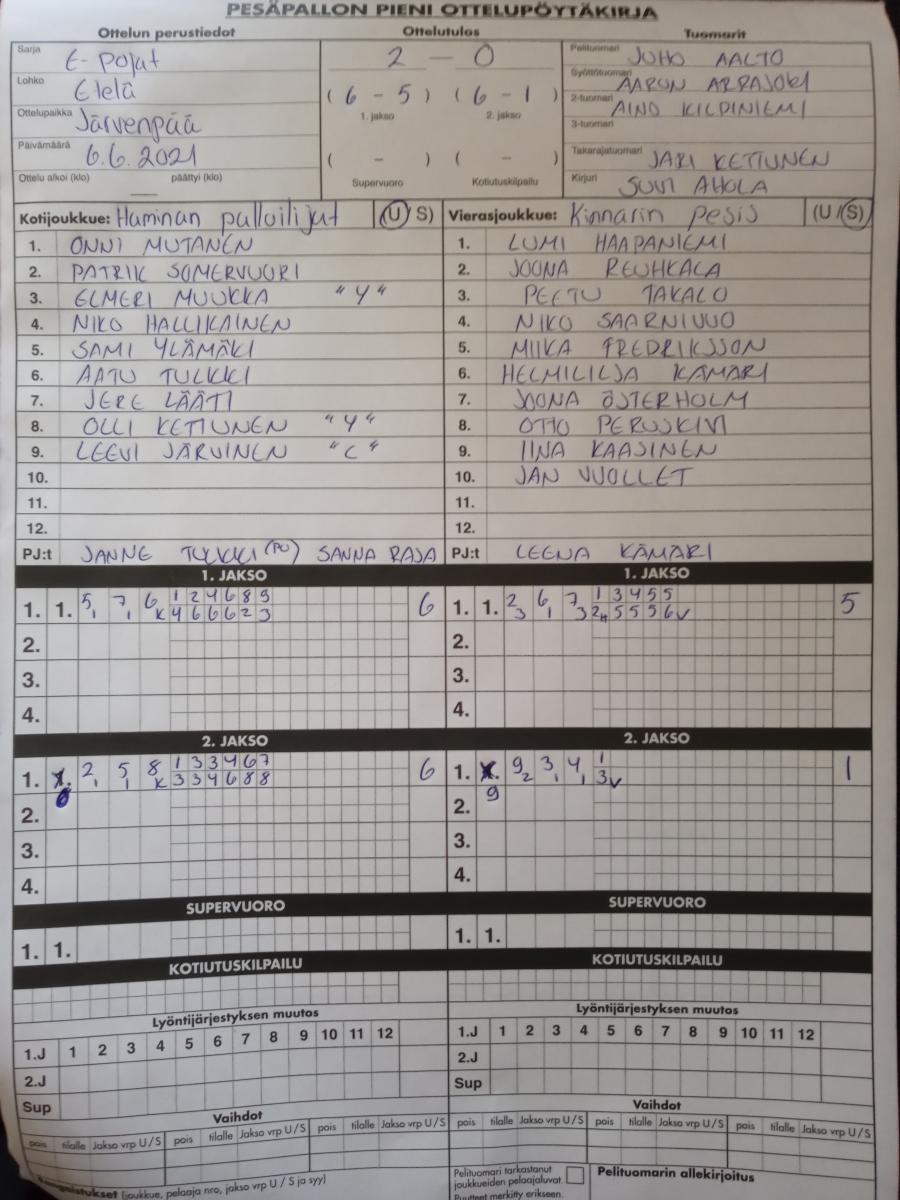 PESÄPALLON PIENI OTTELUPÖYTÄKIRJA
Ottelun perustiedot
Sarja E-Pojat
Lohko Etelä
Ottelupaikka Järvenpää
Päivämäärä 6.6.2021
Ottelu alkoi (klo) — päättyi (klo)
Ottelutulos
2 — 0
(6 - 5) (6 - 1)
1. jakso 2. jakso
( - ) ( - )
Supervuoro Kotiutuskilpailu
Tuomarit
Pelituomari JUHO AALTO
Syöttötuomari AARON ARRAJOKI
2-tuomari AINO KILPINIEMI
3-tuomari
Takarajatuomari JARI KETTUNEN
Kirjuri SUVI AHOLA
Kotijoukkue: Haminan palloilijat (U/S)
1. ONNI MUTANEN
2. PATRIK SOMERVUORI
3. ELMERI MUUKKA "Y"
4. NIKO HALLIKAINEN
5. SAMI YLÄMÄKI
6. AATU TULKKI
7. JERE LÄÄTI
8. OLLI KETTUNEN "Y"
9. LEEVI JÄRVINEN "C"
10.
11.
12.
PJ:t JANNE TULKKI (PU) SANNA RAJA
Vierasjoukkue: Kinnarin pesis (U/S)
1. LUMI HAAPANIEMI
2. JOONA REUHKALA
3. PEETU TAKALO
4. NIKO SAARNIVUO
5. MIIKA FREDRIKSSON
6. HELMILILJA KÄMÄRI
7. JOONA ÖSTERHOLM
8. OTTO PERUSKIVI
9. IINA KAAJINEN
10. JAN VUOLLET
11.
12.
PJ:t LEENA KÄMÄRI
1. JAKSO
1. 1. 5 7 6 1 2 4 6 8 9 6
1 1 K 4 6 6 6 2 3
2.
3.
4.
1. JAKSO
1. 1. 2 6 7 1 3 4 5 5 5
3 1 3 2 5 5 5 6 V
2.
3.
4.
2. JAKSO
1. 2 5 8 1 3 3 4 6 7 6
1 1 K 3 3 4 6 8 8
6
2.
3.
4.
2. JAKSO
1. 9 3 4 1 1
2 1 1 3 V
9
2.
3.
4.
SUPERVUORO
1. 1.
SUPERVUORO
1. 1.
KOTIUTUSKILPAILU
KOTIUTUSKILPAILU
Lyöntijärjestyksen muutos
1.J 1 2 3 4 5 6 7 8 9 10 11 12
2.J
Sup
Lyöntijärjestyksen muutos
1.J 1 2 3 4 5 6 7 8 9 10 11 12
2.J
Sup
Vaihdot
pois tilalle Jakso vrp U/S pois tilalle Jakso vrp U/S pois tilalle Jakso vrp U/S
Vaihdot
pois tilalle Jakso vrp U/S pois tilalle Jakso vrp U/S pois tilalle Jakso vrp U/S
(joukkue, pelaaja nro, jakso vrp U / S ja syy)
Pelituomari tarkastanut
joukkueiden pelaajaluvat.
Puutteet merkitty erikseen.
Pelituomarin allekirjoitus